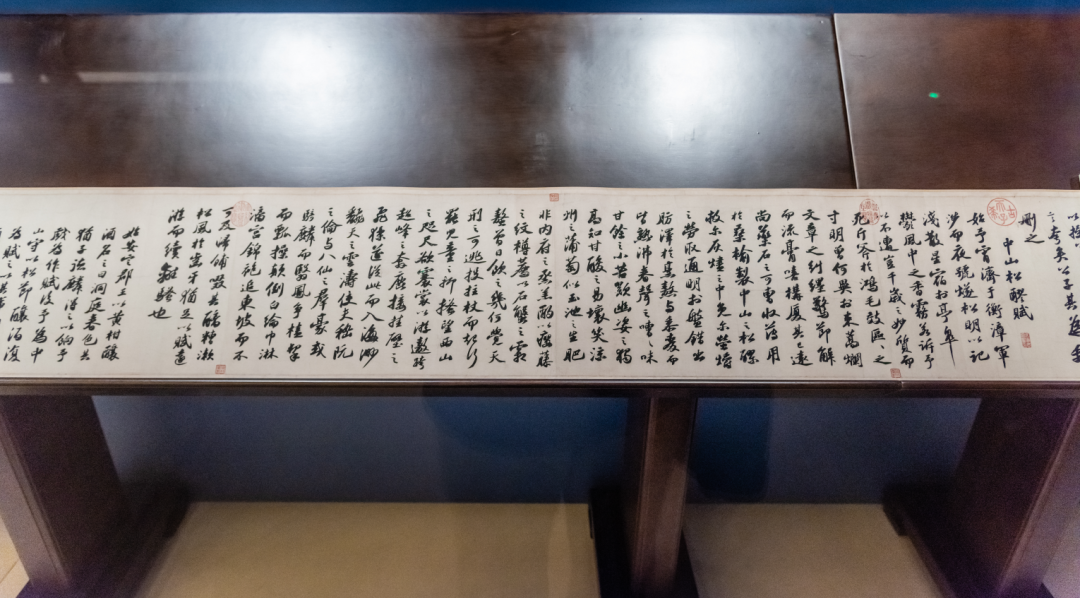 刪之
中山松醪賦
始予宵濟于衡漳軍
涉而夜號燧松明以記
淺散星宿於亭皋
鬱風中之香霧若訴予
以不遭豈千歲之妙質而
死斤斧於鴻毛效區區之
寸明曾何異於束蒿爛
文章之糾纆驚節解
而流膏嗟構廈其已遠
尚藥石之可曹收薄用
於桑榆製中山之松醪
救爾灰燼之中免爾螢爝
之勞取通明於盤錯出
肪澤於烹熬與黍麥而
皆熟沸舂聲之嘈嘈味
甘餘而小苦歎幽姿之獨
高知甘酸之易壞笑涼
州之蒲萄似玉池之生肥
非內府之烝羔酌以癭藤
之紋樽薦以石蟹之霜
螯曾日飲之幾何覺天
刑之可逃投拄杖而起行
罷兒童之抑搔望西山
之咫尺欲褰裳以游遨跨
超峰之奔鹿接挂壁之
飛猱遂從此而入海渺
翻天之雲濤使夫嵇阮
之倫與八仙之群豪或
騎麟而翳鳳爭榼挈
而瓢操顛倒白綸巾淋
漓宮錦袍追東坡而不
可及歸餔歠其醨糟漱
松風於齒牙猶足以賦遠
游而續離騷也
始安定郡王以黃柑釀
酒名之曰洞庭春色其
猶子德麟得之以餉予
戲為作賦後予為中
山守以松節釀酒復